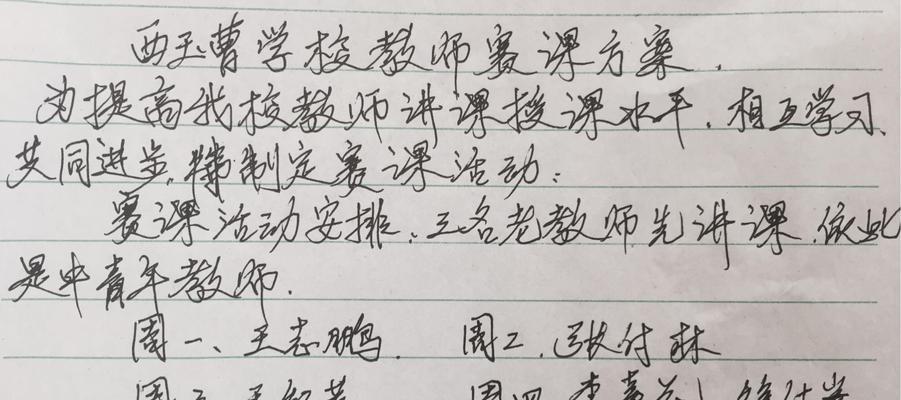 西王曹学校教师赛课方案.
为提高我校教师讲课授课水平,相互学习、
共同进步,特制定赛课活动:
赛课活动安排:三名老教师先讲课,依此
是中青年教师.
周一、王志鹏. 周二、张付林
周三 王 周四 李